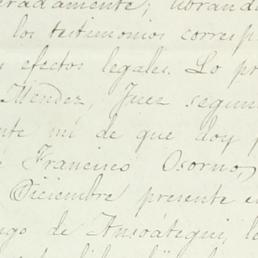 eradamente; librand
los testimonios corresp
efectos legales. Lo pr
Méndez, Juez segun
nte mí de que doy f
Francisco Osorno,
Diciembre presente e
go de Ansoátegui, l